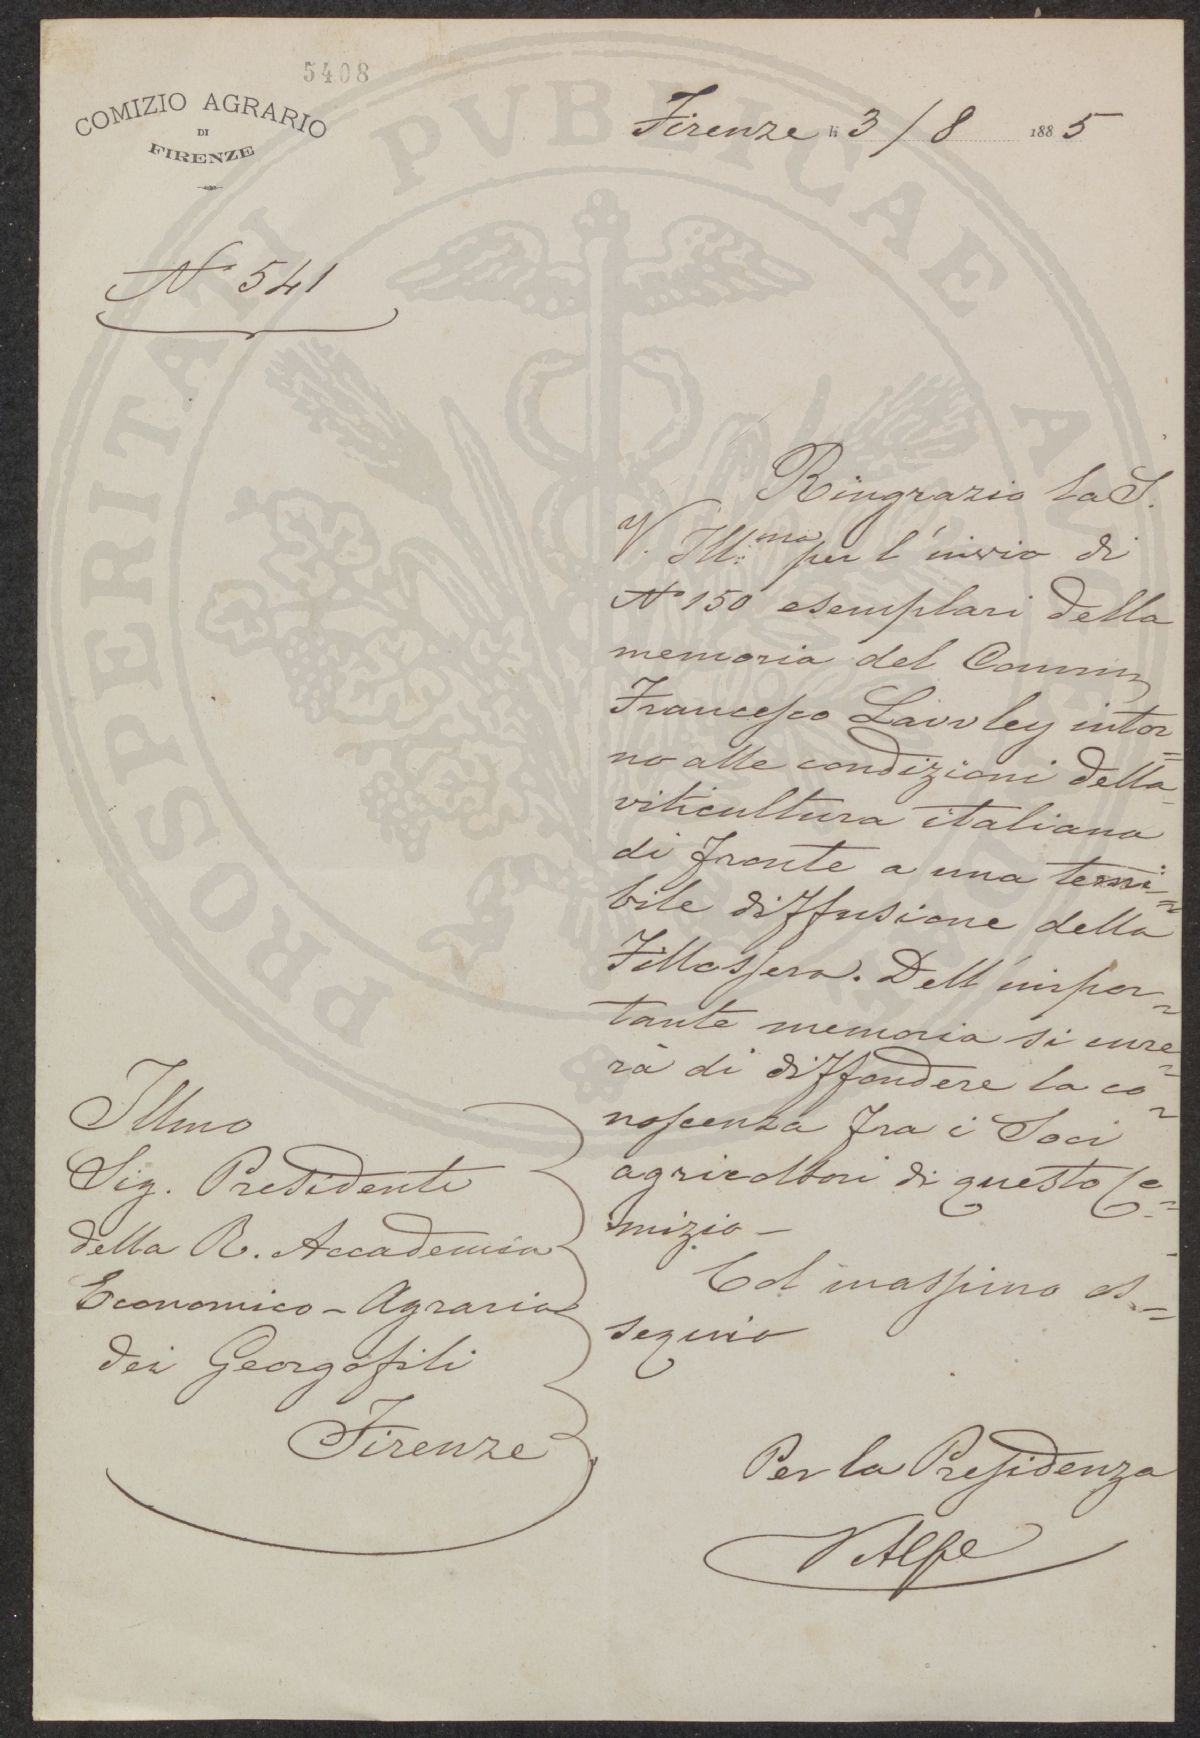 5408
COMIZIO AGRARIO
DI
FIRENZE
Firenze li 3/8 1885
N° 541
Ringrazio la S.
V. Ill:ma per l'invio di
N° 150 esemplari della
memoria del Comm
Francesco Lawley intor=
no alle condizioni della
viticultura italiana
di fronte a una temi=
bile diffusione della
Fillossera. Dell'impor=
tante memoria si cure=
rà di diffondere la co=
noscenza fra i Soci
agricoltori di questo Co=
mizio -
Col massimo os=
sequio
Per la Presidenza
V Alpe
Illmo
Sig. Presidente
della R. Accademia
Economico-Agraria
dei Georgofili
Firenze
PROSPERITATI PVBLICAE AVGENDAE